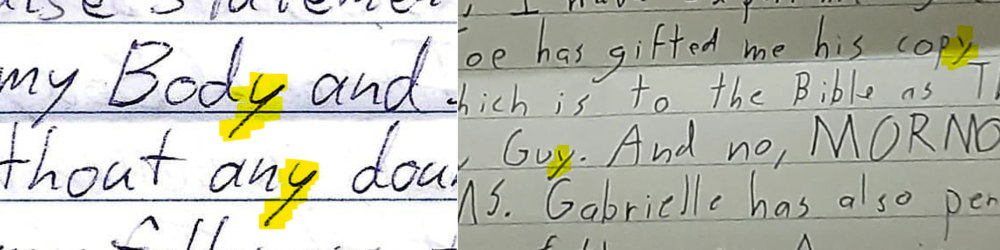 my Body and
thout any dou
oe has gifted me his copy
hich is to the Bible as Th
Guy. And no, MORMO
NS. Gabrielle has also per